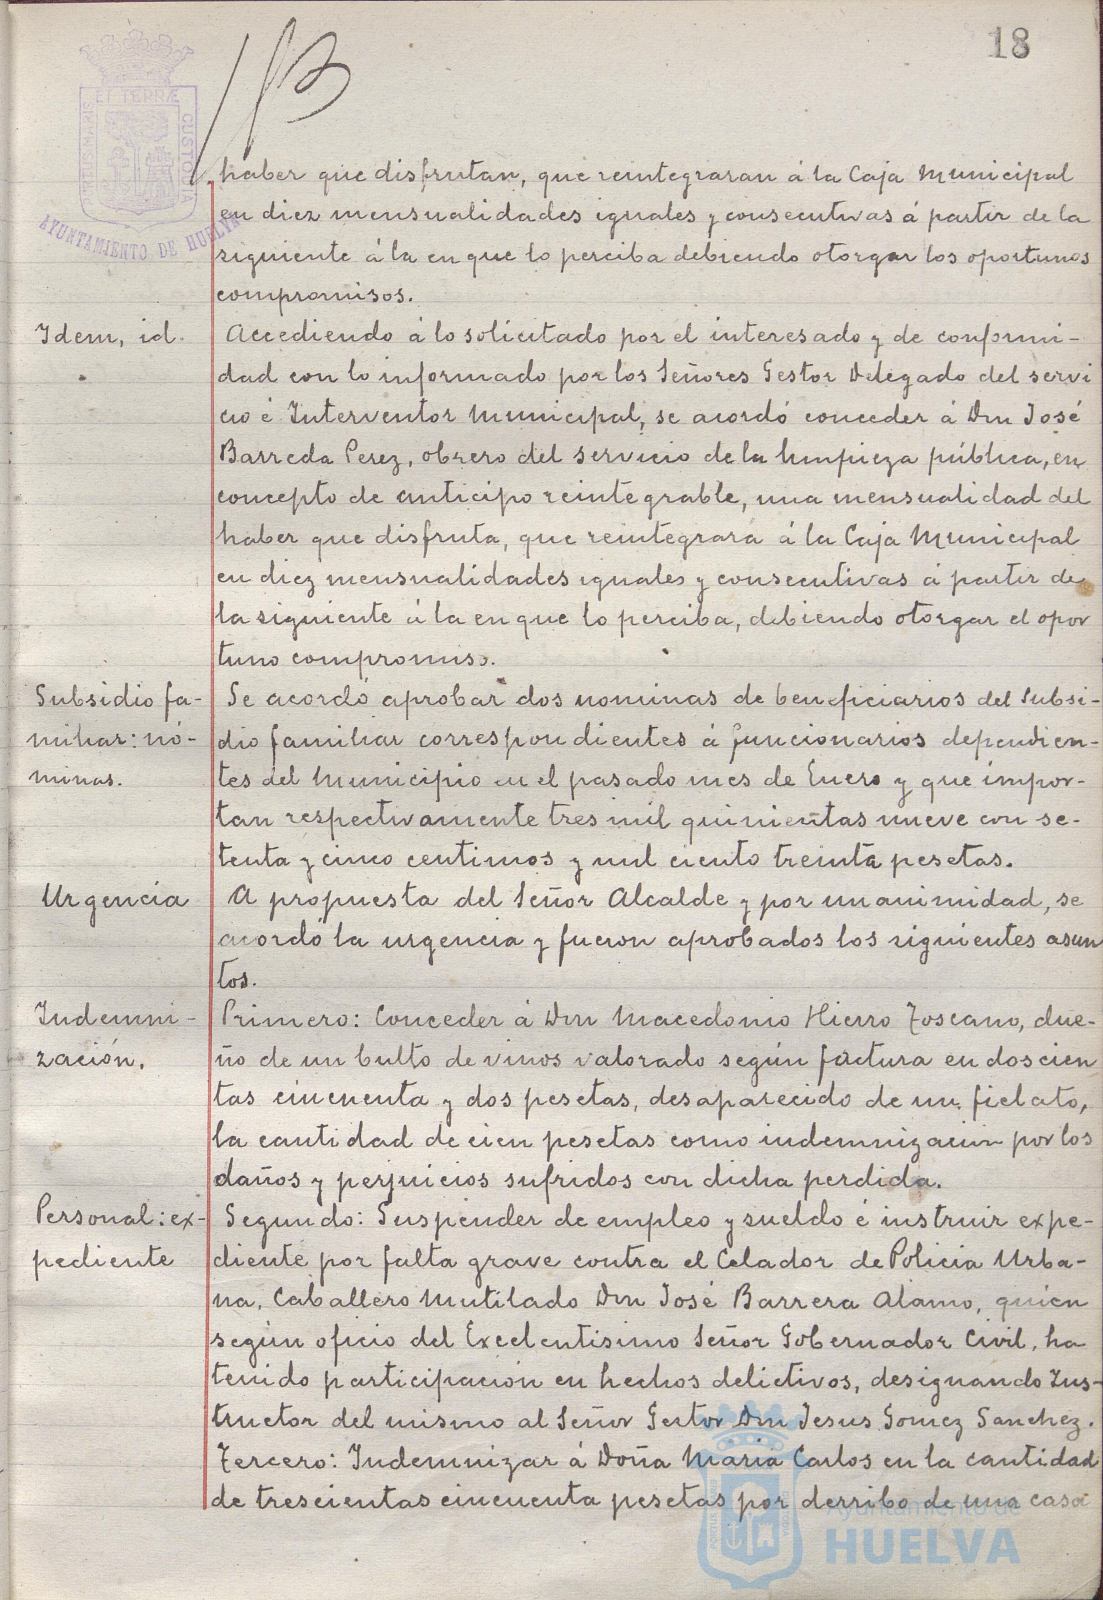 18
PORTUS MARIS ET TERRÆ CUSTODIA
AYUNTAMIENTO DE HUELVA
haber que disfrutan, que reintegraran á la Caja Municipal
en diez mensualidades iguales y consecutivas á partir de la
siguiente á la en que lo perciba debiendo otorgar los oportunos
compromisos.
Idem, id. Accediendo á lo solicitado por el interesado y de conformi-
dad con lo informado por los Señores Gestor Delegado del servi
cio é Interventor Municipal, se acordó conceder á Don José
Barreda Perez, obrero del servicio de la limpieza pública, en
concepto de anticipo reintegrable, una mensualidad del
haber que disfruta, que reintegrará á la Caja Municipal
en diez mensualidades iguales y consecutivas á partir de
la siguiente á la en que lo perciba, debiendo otorgar el opor
tuno compromiso.
Subsidio fa- Se acordó aprobar dos nominas de beneficiarios del Subsi-
miliar: nó- dio familiar correspondientes á funcionarios dependien-
minas. tes del Municipio en el pasado mes de Enero y que impor-
tan respectivamente tres mil quinientas nueve con se-
tenta y cinco centimos y mil ciento treinta pesetas.
Urgencia A propuesta del Señor Alcalde y por unanimidad, se
acordó la urgencia y fueron aprobados los siguientes asun
tos.
Indemni- Primero: Conceder á Don Macedonio Hierro Toscano, due-
zación. ño de un bulto de vinos valorado según factura en doscien
tas cincuenta y dos pesetas, desaparecido de un fielato,
la cantidad de cien pesetas como indemnización por los
daños y perjuicios sufridos con dicha perdida.
Personal: ex- Segundo: Suspender de empleo y sueldo é instruir expe-
pediente diente por falta grave contra el Celador de Policia Urba-
na, Caballero Mutilado Don José Barrera Alamo, quien
según oficio del Excelentisimo Señor Gobernador Civil, ha
tenido participación en hechos delictivos, designando Ins-
tructor del mismo al Señor Gestor Don Jesus Gomez Sanchez.
Tercero: Indemnizar á Doña Maria Carlos en la cantidad
de trescientas cincuenta pesetas por derribo de una casa
Ayuntamiento de
HUELVA